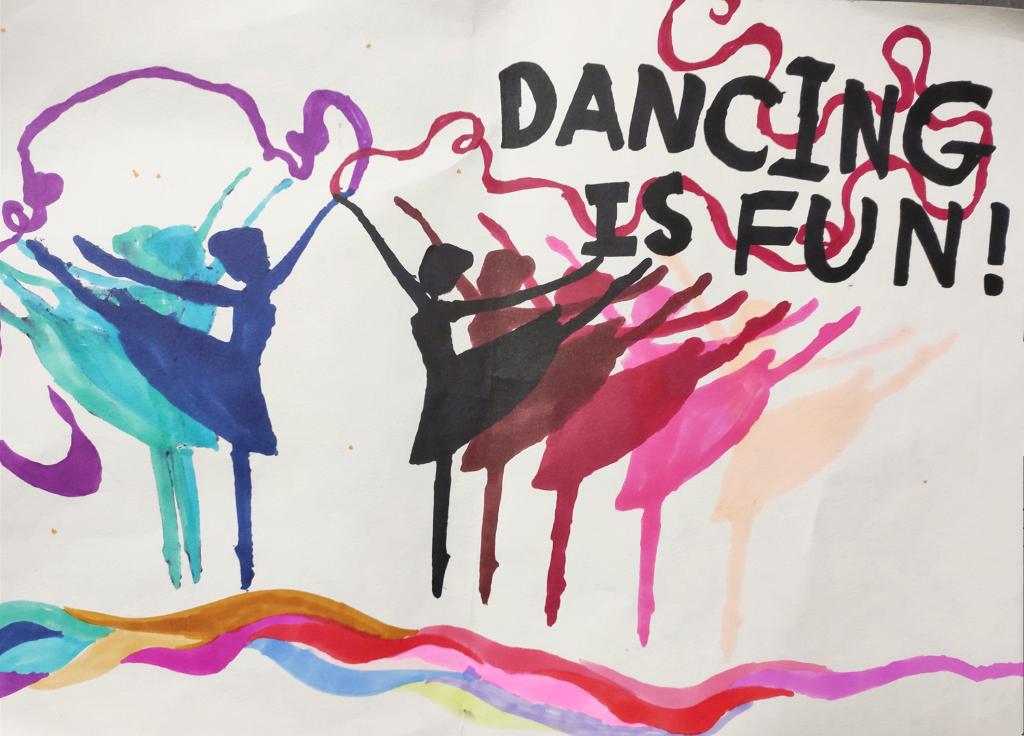 DANCING
IS FUN!